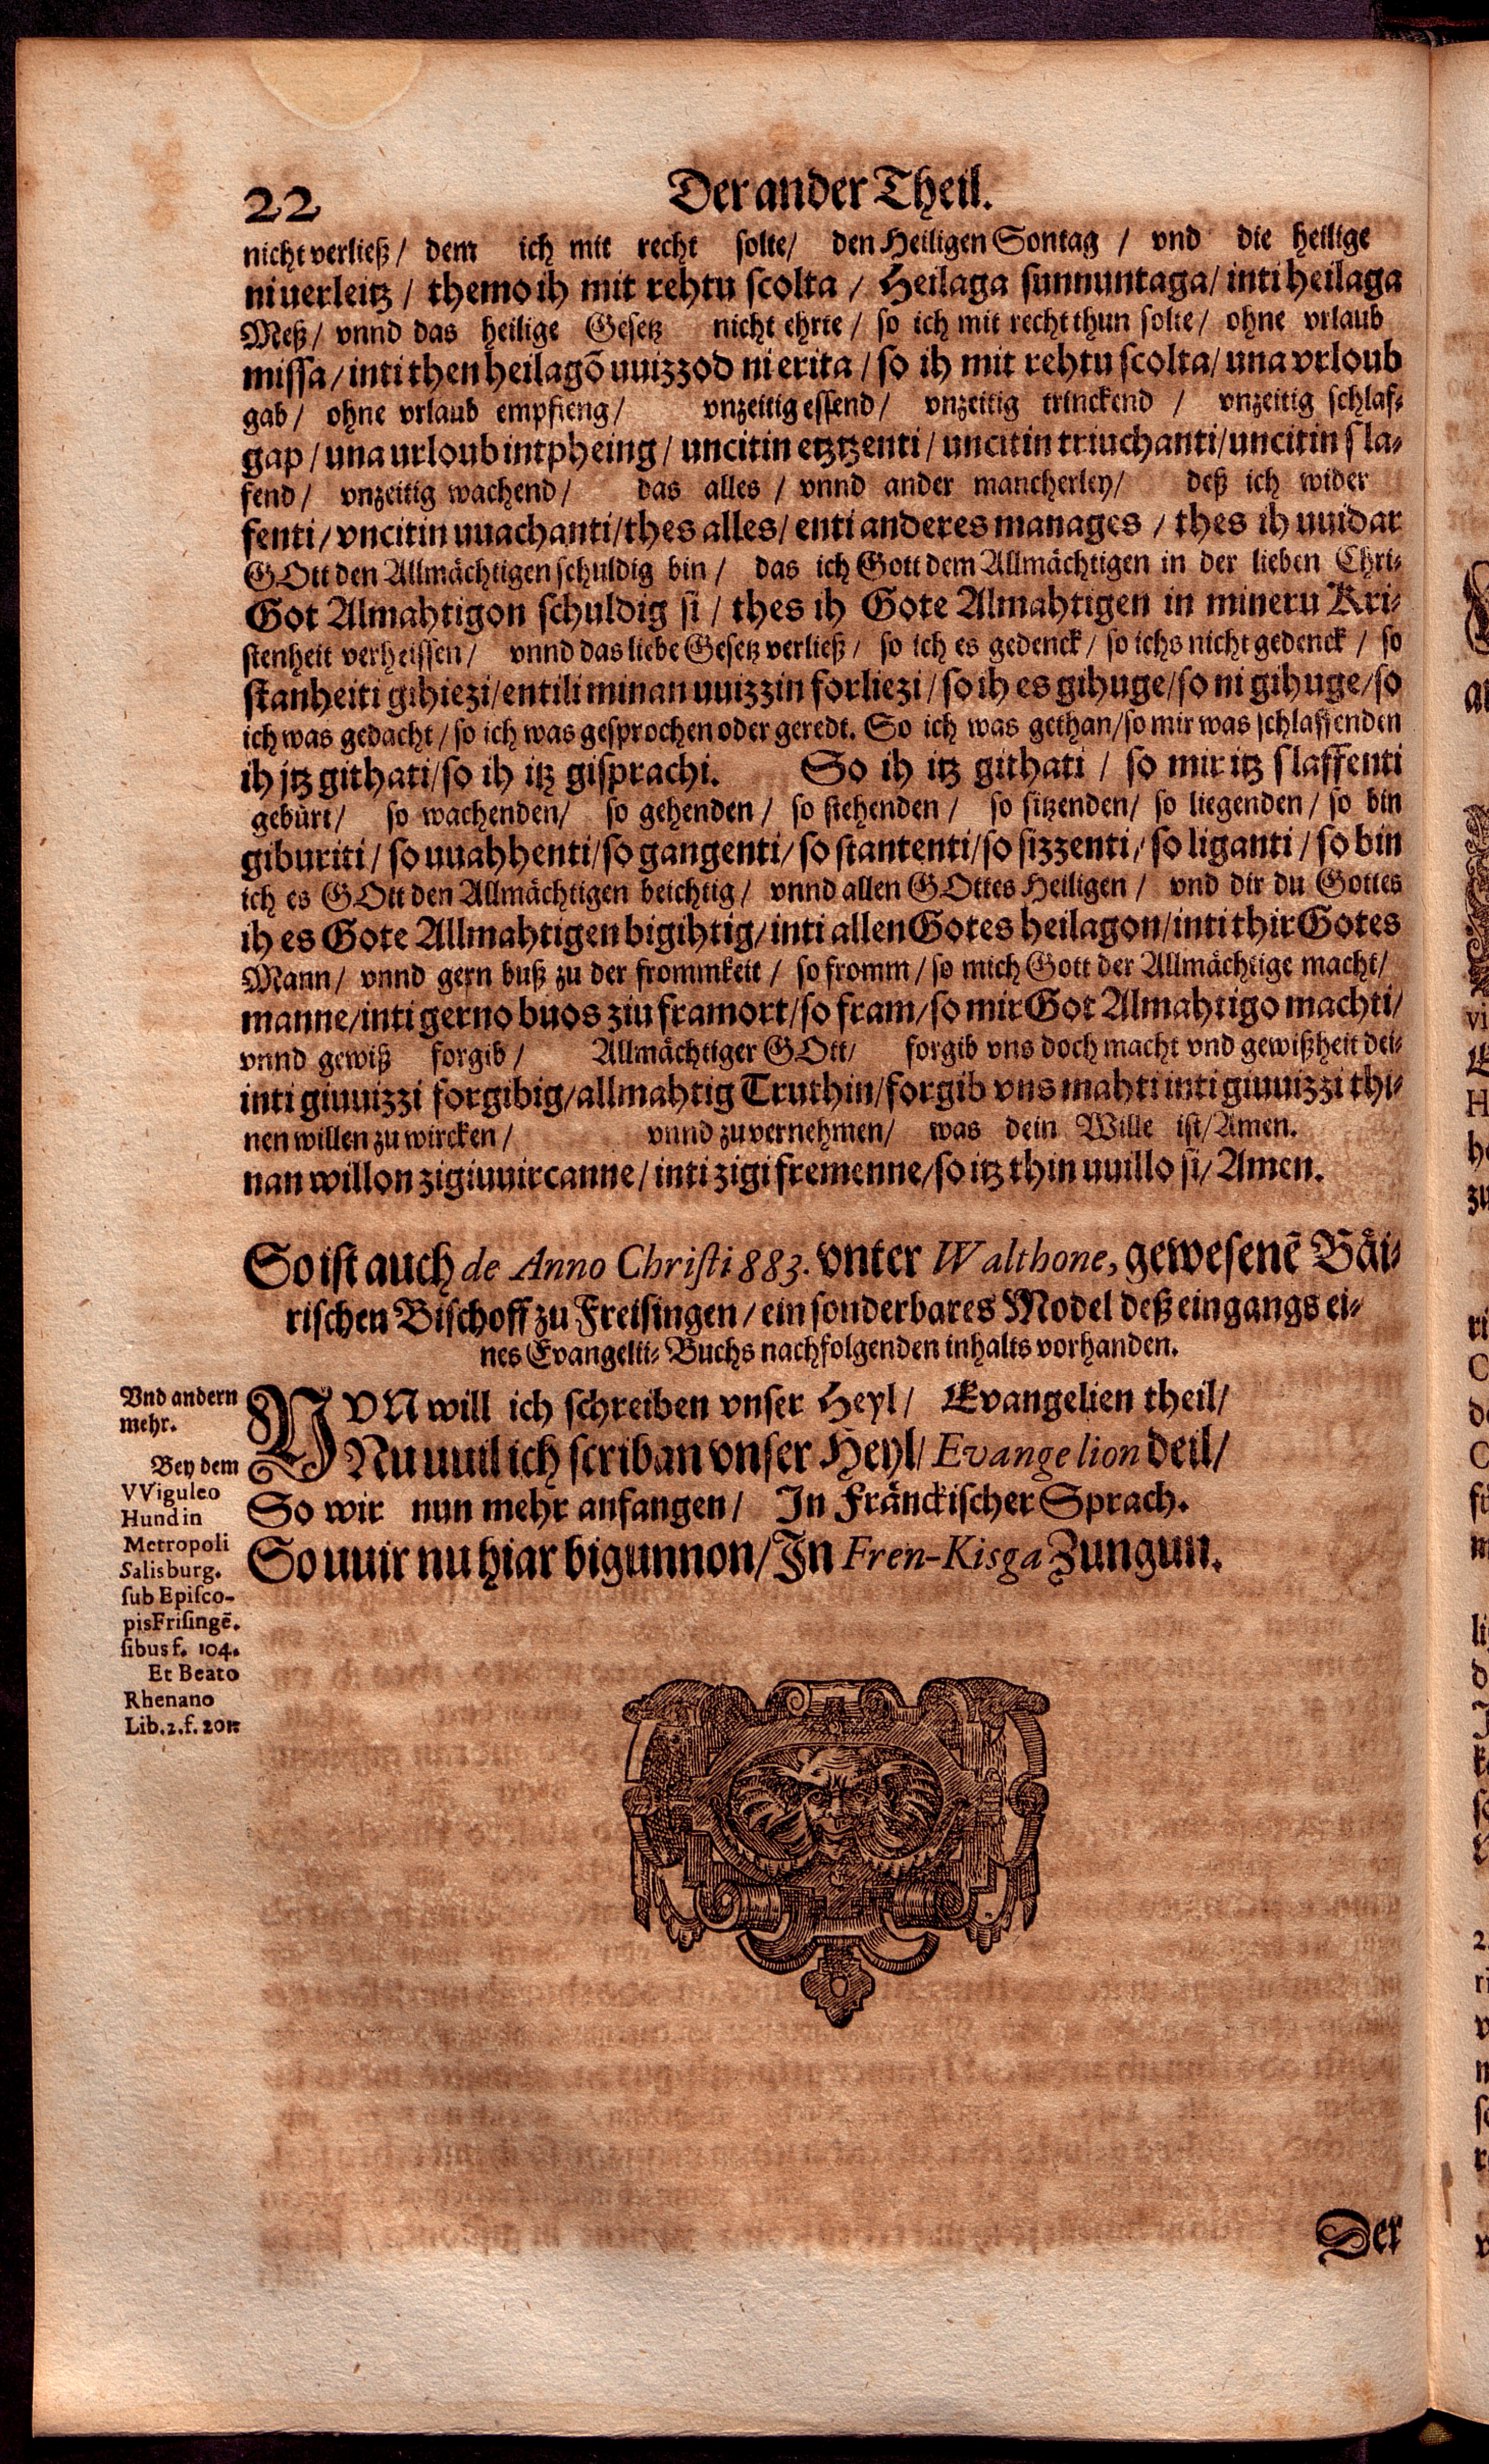 22
Der ander Theil.
nicht verließ / dem ich mit recht solte / den Heiligen Sontag / vnd die heilige
niuerleitz / themo ih mit rehtu scolta / Heilaga sunnuntaga / inti heilaga
Meß / vnnd das heilige Gesetz nicht ehrte / so ich mit recht thun solte / ohne vrlaub
missa / inti then heilagõ uuizzod ni erita / so ih mit rehtu scolta / una vrloub
gab / ohne vrlaub empfieng / vnzeitig essend / vnzeitig trinckend / vnzeitig schlaf-
gap / una urloub intpheing / uncitin etztzenti / uncitin triuchanti / uncitin sla-
fend / vnzeitig wachend / das alles / vnnd ander mancherley / deß ich wider
fenti / vncitin uuachanti / thes alles / enti anderes manages / thes ih uuidar
GOtt den Allmächtigen schuldig bin / das ich Gott dem Allmächtigen in der lieben Chri-
Got Almahtigon schuldig si / thes ih Gote Almahtigen in mineru Kri-
stenheit verheissen / vnnd das liebe Gesetz verließ / so ich es gedenck / so ichs nicht gedenck / so
stanheiti gihiezi / enti li minan uuizzin forliezi / so ih es gihuge / so ni gihuge / so
ich was gedacht / so ich was gesprochen oder geredt. So ich was gethan / so mir was schlaffenden
ih jtz githati / so ih itz gisprachi. So ih itz githati / so mir itz slaffenti
gebürt / so wachenden / so gehenden / so stehenden / so sitzenden / so liegenden / so bin
giburiti / so uuahhenti / so gangenti / so stantenti / so sizzenti / so liganti / so bin
ich es GOtt den Allmächtigen beichtig / vnnd allen GOttes Heiligen / vnd dir du Gottes
ih es Gote Allmahtigen bigihtig / inti allen Gotes heilagon / inti thir Gotes
Mann / vnnd gern buß zu der frommkeit / so fromm / so mich Gott der Allmächtige macht /
manne / inti gerno buos ziu framort / so fram / so mir Got Almahtigo machti /
vnnd gewiß forgib / Allmächtiger GOtt / forgib vns doch macht vnd gewißheit dei-
inti giuuizzi forgibig / allmahtig Truthin / forgib vns mahti inti giuuizzi thi-
nen willen zu wircken / vnnd zu vernehmen / was dein Wille ist / Amen.
nan willon zigiuuircanne / inti zigifremenne / so itz thin uuillo si / Amen.
So ist auch de Anno Christi 883. vnter Walthone, gewesenẽ Bäi-
rischen Bischoff zu Freisingen / ein sonderbares Model deß eingangs ei-
nes Evangelii-Buchs nachfolgenden inhalts vorhanden.
Vnd andern
mehr.
Bey dem
VViguleo
Hund in
Metropoli
Salisburg.
sub Episco-
pis Frisingẽ.
sibus f. 104.
Et Beato
Rhenano
Lib. 2. f. 201.
NVN will ich schreiben vnser Heyl / Evangelien theil /
Nu uuil ich scriban vnser Heyl / Evangelion deil /
So wir nun mehr anfangen / In Fränckischer Sprach.
So uuir nu hiar bigunnon / In Fren-Kisga Zungun.
Der